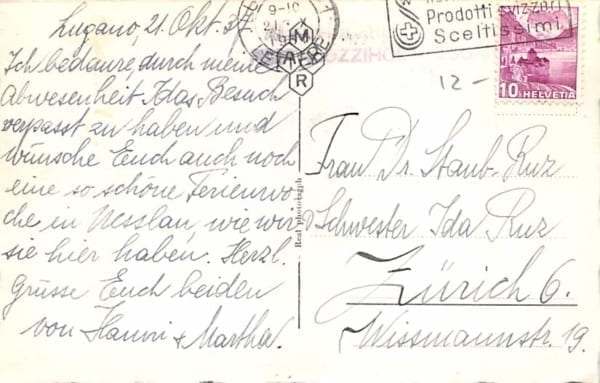 Lugano, 21. Okt. 37.
Ich bedaure, durch meine
Abwesenheit Idas Besuch
verpasst zu haben und
wünsche Euch auch noch
eine so schöne Ferienwo-
che in Nesslau, wie wir
sie hier haben. Herzl.
Grüsse Euch beiden
von Hanni & Martha.
9-10
X
M
R
Prodotti svizzeri
Sceltissimi
10 HELVETIA
12-
Real photograph
Frau Dr. Staub-Ruz
& Schwester Ida Ruz
Zürich 6.
Wissmannstr. 19.